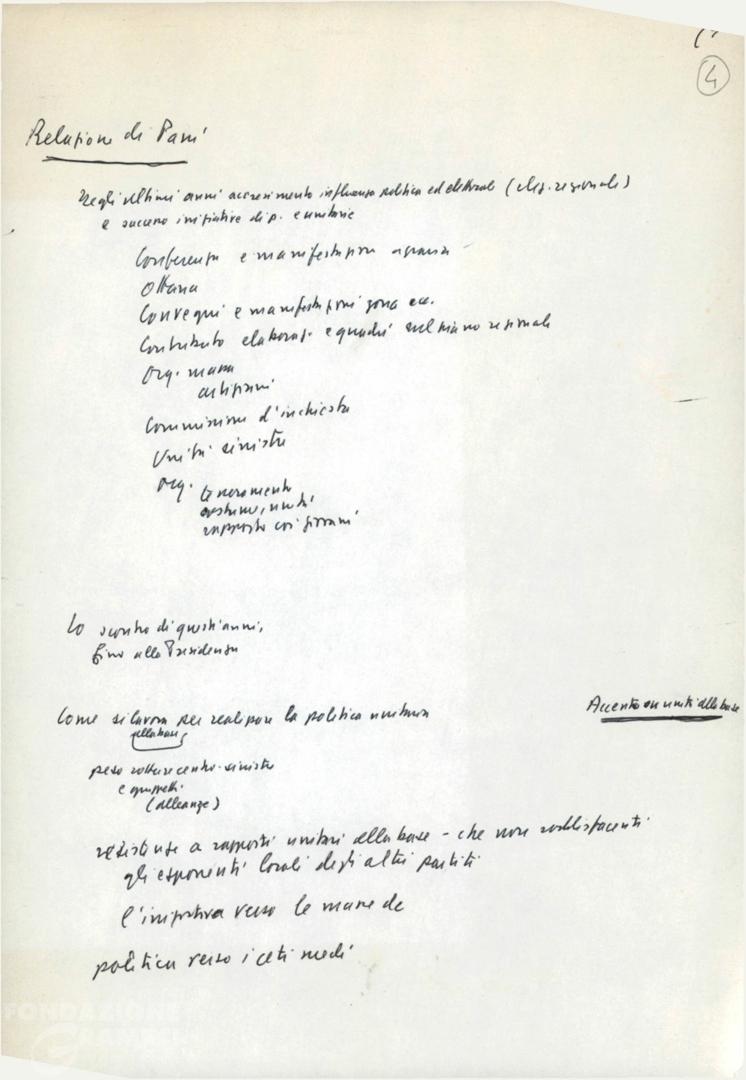 4
Relazione di Pani
Negli ultimi anni accrescimento influenza politica ed elettorale (elez. regionali)
e successo iniziative di p. e unitarie
Conferenza e manifestazioni agraria
Ottana
Convegni e manifestazioni zona ecc.
Contributo elaboraz. e quadri sul piano regionale
Org. massa
artigiani
Commissione d'inchiesta
Unità sinistra
Org. tesseramento
costume, unità
rapporto coi giovani
Lo scontro di questi anni,
fino alla Presidenza
Come si lavora per realizzare la politica unitaria
alla base
Accento su unità alla base
peso rotture centro-sinistra
e gruppetti
(alleanze)
resistenze a rapporti unitari alla base - che non soddisfacenti
gli esponenti locali degli altri partiti
l'iniziativa verso le masse dc
politica verso i ceti medi
FONDAZIONE